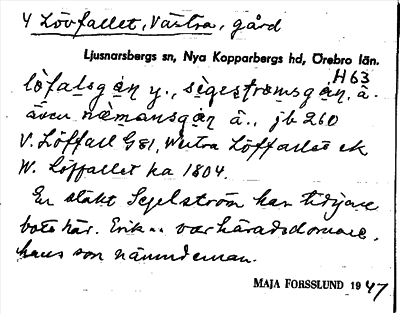 4 Lövfallet, Västra, gård
Ljusnarsbergs sn, Nya Kopparbergs hd, Örebro län.
H63
löfalsgạn y., sègeströmsgạn, ä.
även næmansgạn ä., jb 260
V. Löffall G81, Westra Löffallet ek
W. Löffallet ka 1804.
En släkt Segelström har tidigare
bott här. Erik .. var häradsdomare,
hans son nämndeman.
MAJA FORSSLUND 1947